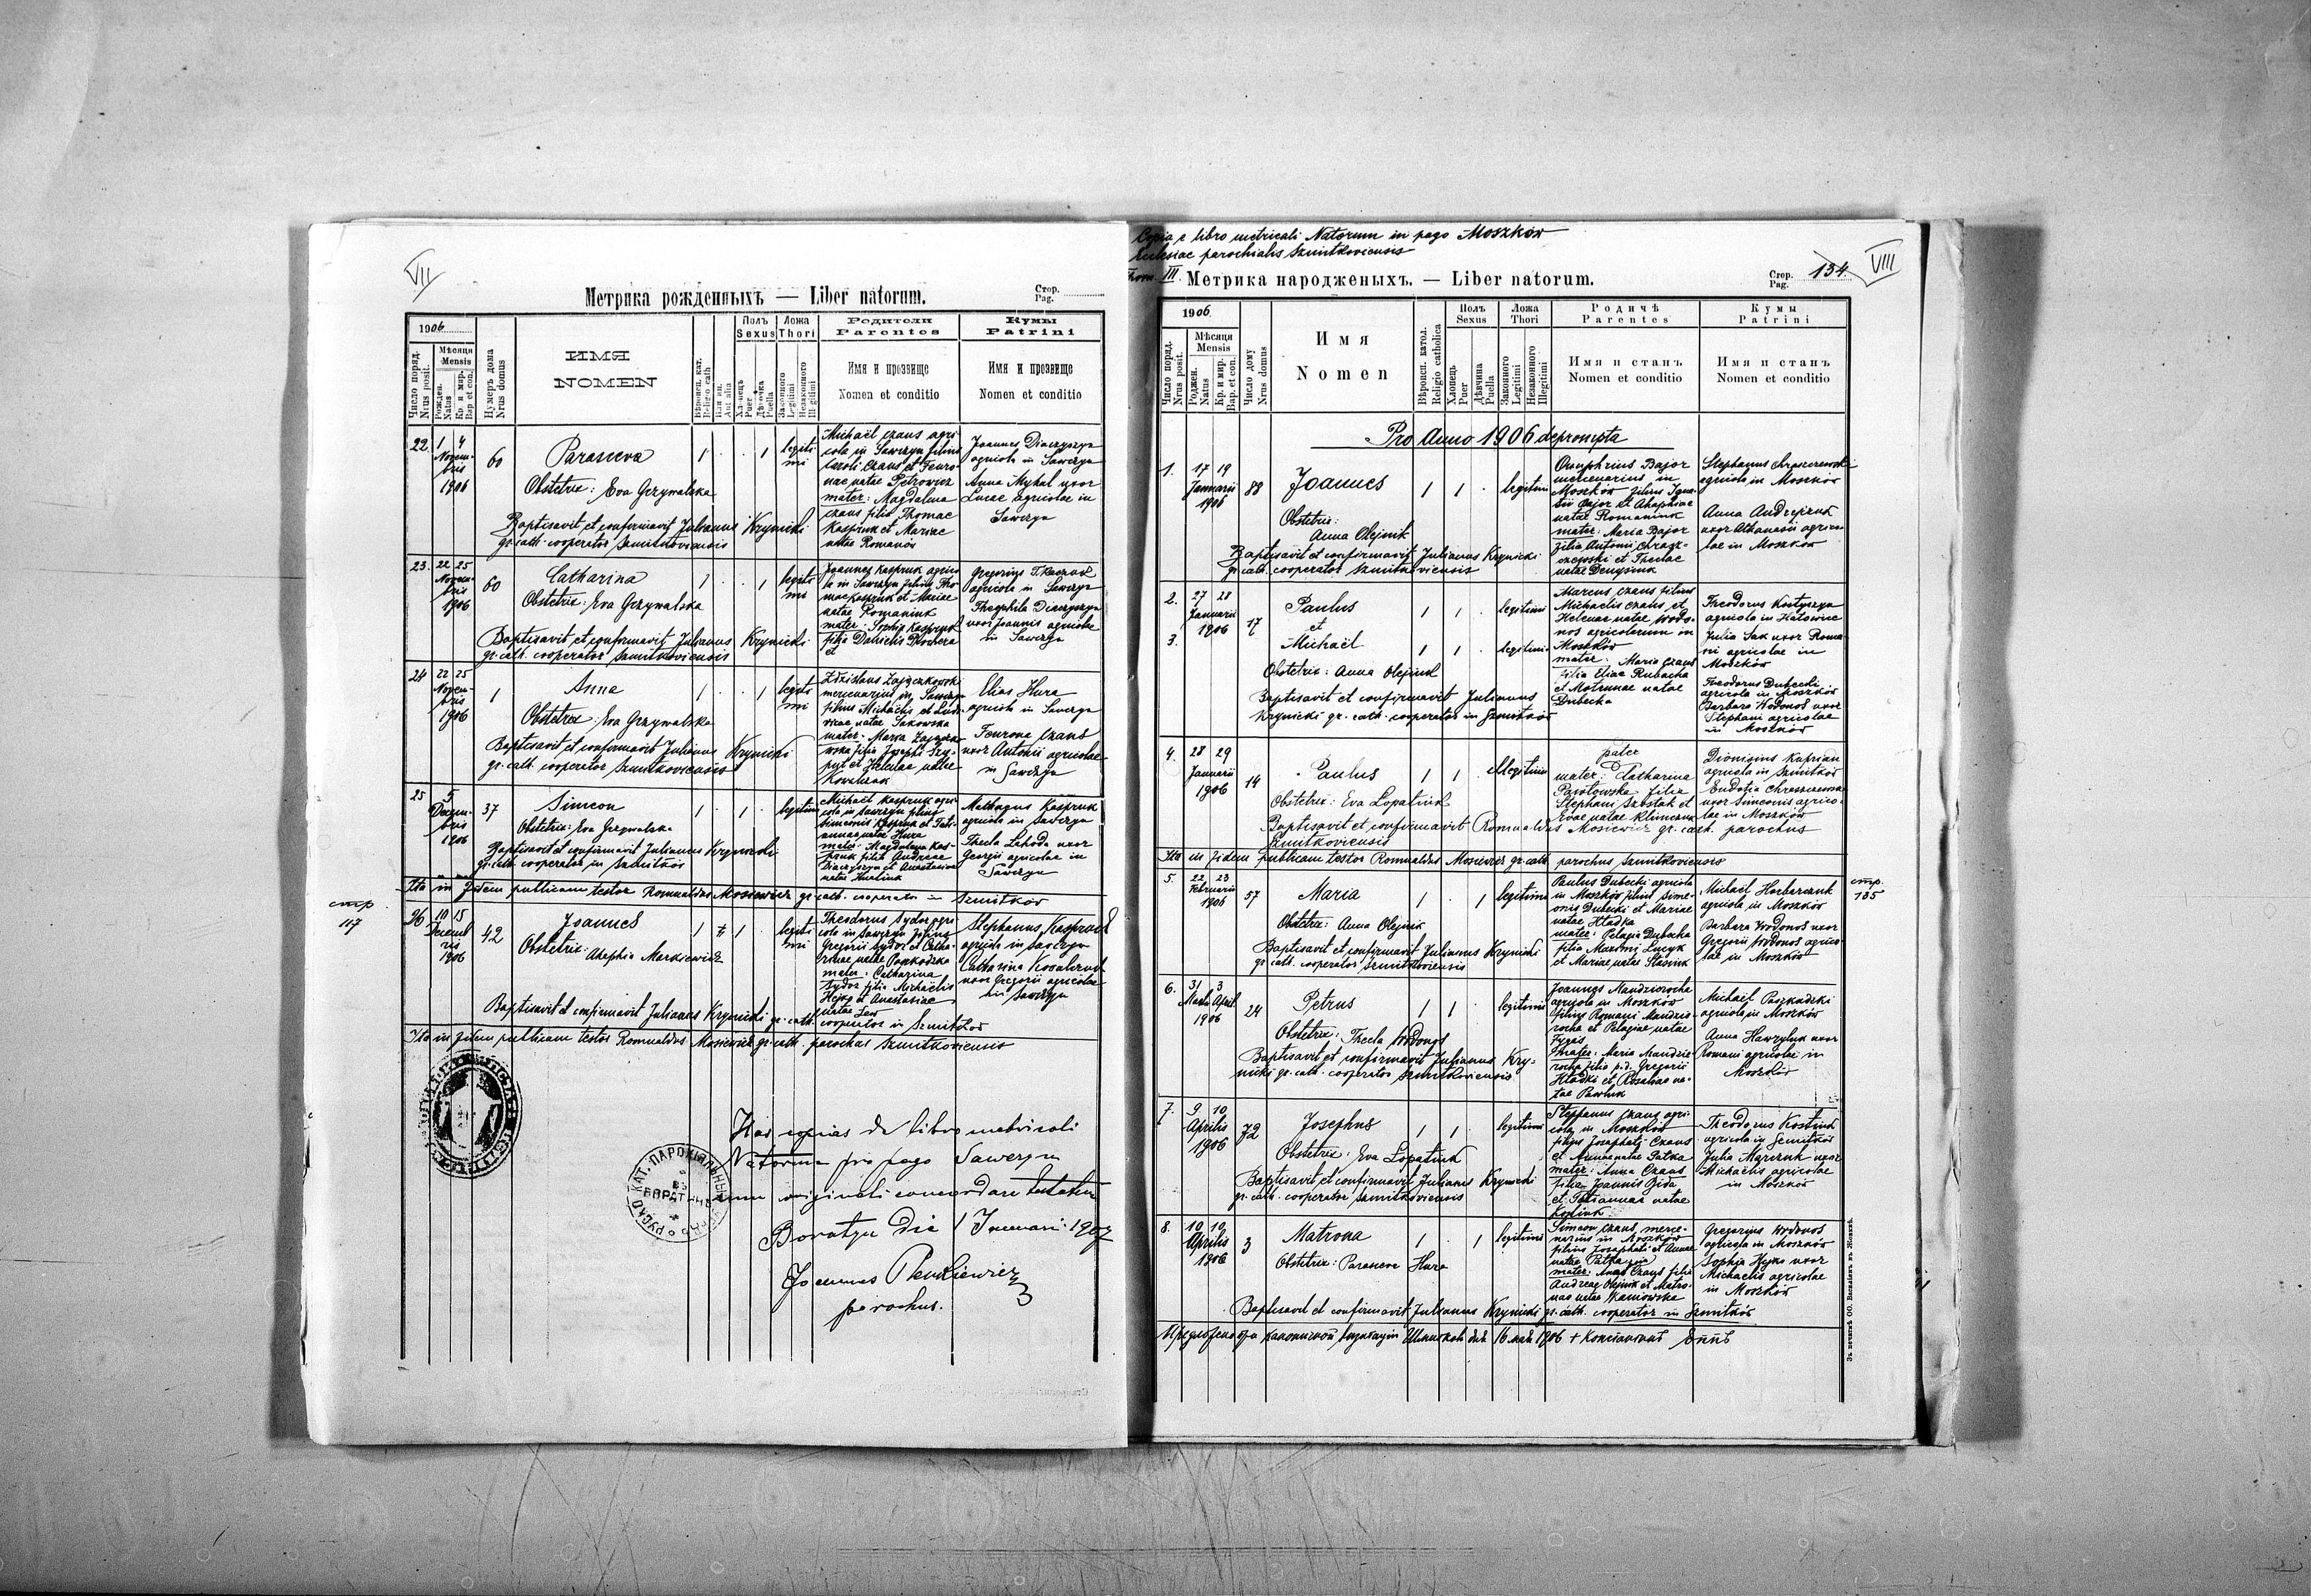 VII
Метрика рожденныхъ — Liber natorum.
Стор.
Pag.
1906
Число поряд.
Nrus posit.
Мѣсяця
Mensis
Рожден.
Natus
Кр. и мир.
Bap et con.
Нумеръ дома
Nrus domus
ИМЯ
NOMEN
Вѣроисп. кат.
Religio cath
Или ин.
Aut alia
Полъ
Sexus
Puer
Дѣвочка
Puella
Ложа
Thori
Законного
Legitimi
Незаконного
Illegitimi
Родители
Parentes
Имя и прозвище
Nomen et conditio
Кумы
Patrini
Имя и прозвище
Nomen et conditio
22.
1 4
Novem-
bris
1906
60
Parasceva
Obstetrix: Eva Grzywalska
Baptisavit et confirmavit Julianus Krynicki
gr. cath. cooperator Szmitkoviensis
1 1
legiti
mi
Michaël Czaus agri-
cola in Sawczyn filius
Caroli Czaus et Feuro-
nae natae Petrowicz
mater: Magdalena
Czaus filia Thomae
Kaspruk et Mariae
natae Romanów
Joannes Diaczyszyn
agricola in Sawczyn
Anna Mykal uxor
Lucae agricolae in
Sawczyn
23.
22 25
Novem-
bris
1906
60
Catharina
Obstetrix: Eva Grzywalska
Baptisavit et confirmavit Julianus Krynicki
gr. cath. cooperator Szmitkoviensis
1 1
legiti
mi
Joannes Kaspruk agrico
la in Sawczyn filius Tho-
mae Kaspruk et Mariae
natae Romaniuk
mater: Sophia Kaspruk
filia Danielis
et
Gregorius Tkaczuk
agricola in Sawczyn
Theophila Diaczyszyn
uxor Joannis agricolae
in Sawczyn
24
22 25
Novem-
bris
1906
1
Anna
Obstetrix: Eva Grzywalska
Baptisavit et confirmavit Julianus Krynicki
gr. cath. cooperator Szmitkoviensis
1 1
legiti
mi
Zdzislaus Zajączkowski
mercenarius in Sawczyn
filius Michaëlis et Ludo-
vicae natae Sakowska
mater: Maria Zajączko-
wska filia Josephi Szy-
put et Helenae natae
Kowalczuk
Elias Hura
agricola in Sawczyn
Feurona Czaus
uxor Antonii agricolae
in Sawczyn
25
5
Decem-
bris
1906
37
Simeon
Obstetrix: Eva Grzywalska
Baptisavit et confirmavit Julianus Krynicki
gr. cath. cooperator in Szmitków
1 1
legitimi
Michaël Kaspruk agri-
cola in Sawczyn filius
Simeonis Kaspruk et Tati-
annae natae Hura
mater: Magdalena Kas-
pruk filia Andreae
Diaczyszyn et Anastasiae
natae
Kaspruk
agricola in Sawczyn
Thecla Lahoda uxor
Georgii agricolae in
Sawczyn
Ita in fidem publicam testor Romualdus Mosiewicz gr. cath. cooperator in Szmitków
стр.
117
26
10 15
Decemb
ris
1906
42
Joannes
Obstetrix: Ahaphia Markiewicz
1 1
legiti
mi
Theodorus Sydor agri
cola in Sawczyn filius
Gregorii Sydor et Catha-
rinae natae
mater: Catharina
Sydor filia Michaëlis
Hejko et Anastasiae
natae Lew
Stephanus Kaspruk
agricola in Sawczyn
Catharina Kowalczuk
uxor Gregorii agricolae
in Sawczyn
Baptisavit et confirmavit Julianus Krynicki gr. cath. cooperator in Szmitków
Ita in fidem publicam testor Romualdus Mosiewicz gr. cath. parochus Szmitkoviensis
Has copias de libro metricali
Natorum pro pago Sawczyn
cum originali concordare testatur
Boratyn die 1 Januarii 1907
Joannes Penkiewicz
parochus.
Copia e libro metricali Natorum in pago Moszków
Ecclesiae parochialis Szmitkoviensis
Tom. III.
Метрика народженыхъ. — Liber natorum.
Стор.
Pag.
134
VIII
1906
Число поряд.
Nrus posit.
Мѣсяця
Mensis
Роджен.
Natus
Кр. и мир.
Bap. et con.
Число дому
Nrus domus
Имя
Nomen
Вѣроисп. катол.
Religio catholica
Полъ
Sexus
Хлопець
Puer
Дѣвчина
Puella
Ложа
Thori
Законного
Legitimi
Незаконного
Illegitimi
Родичѣ
Parentes
Имя и станъ
Nomen et conditio
Кумы
Patrini
Имя и станъ
Nomen et conditio
Pro Anno 1906 deprompta
1.
17 19
Januarii
1906
88
Joannes
Obstetrix:
Anna Olejnik
Baptisavit et confirmavit Julianus Krynicki
gr. cath. cooperator Szmitkoviensis
1 1
legitimi
Onuphrius Bajor
mercenarius in
Moszków filius Igna-
tii Bajor et Ahaphiae
natae Romaniuk
mater: Maria Bajor
filia Antonii Chrasz-
czewski et Theclae
natae Denysiuk
Stephanus Chraszczewski
agricola in Moszków
Anna Andrejczuk
uxor Athanasii agrico-
lae in Moszków
2.
3.
27 28
Januarii
1906
17
Paulus
et
Michaël
Obstetrix: Anna Olejnik
Baptisavit et confirmavit Julianus
Krynicki gr. cath. cooperator in Szmitków
1 1
legitimi
1 1
legitimi
Marcus Czaus filius
Michaelis Czaus et
Helenae natae Wodo-
nos agricolarum in
Moszków
mater: Maria Czaus
filia Eliae Rubacha
et Motrunae natae
Dubecka
Theodorus Kostyszyn
agricola in Hatowice
Julia Sak uxor Roma-
ni agricolae in
Moszków
Theodorus Dubecki
agricola in Moszków
Barbara Wodonos uxor
Stephani agricolae
in Moszków
4.
28 29
Januarii
1906
14
Paulus
Obstetrix: Eva Lopatiuk
1 1
illegitimi
pater
mater: Catharina
Pawlowska filia
Stephani Szostak et
Evae natae Klimczuk
Dionisius Kuprian
agricola in Szmitków
Eudotia Chraszczewska
uxor Simeonis agrico-
lae in Moszków
Baptisavit et confirmavit Romualdus Mosiewicz gr. cath. parochus
Szmitkoviensis
Ita in fidem publicam testor Romualdus Mosiewicz gr. cath. parochus Szmitkoviensis
5.
22 23
Februarii
1906
57
Maria
Obstetrix: Anna Olejnik
Baptisavit et confirmavit Julianus Krynicki
gr. cath. cooperator Szmitkoviensis
1 1
legitimi
Paulus Dubecki agricola
in Moszków filius Sime-
onis Dubecki et Mariae
natae Hladka
mater: Pelagia Dubecka
filia Maximi Lucyk
et Mariae natae Stasiuk
Michaël Horbarczuk
agricola in Moszków
Barbara Wodonos uxor
Gregorii Wodonos agrico-
lae in Moszków
стр.
135
6.
31 3
Martii April
1906
24
Petrus
Obstetrix: Thecla Wodonos
Baptisavit et confirmavit Julianus Kry-
nicki gr. cath. cooperator Szmitkoviensis
1 1
legitimi
Joannes Mandziorocha
agricola in Moszków
filius Romani Mandzio-
rocha et Pelagiae natae
mater: Maria Mandzio-
rocha filia p.d. Gregorii
Hladki et Rosaliae na-
tae Pawluk
Michaël Paszkudzki
agricola in Moszków
Anna Hawryluk uxor
Romani agricolae in
Moszków
7.
9 10
Aprilis
1906
72
Josephus
Obstetrix: Eva Lopatiuk
Baptisavit et confirmavit Julianus Krynicki
gr. cath. cooperator Szmitkoviensis
1 1
legitimi
Stephanus Czaus agri-
cola in Moszków
filius Josaphati Czaus
et Annae natae
mater: Anna Czaus
filia Joannis Gida
et Tatiannae natae
Kostiuk
Theodorus Kostiuk
agricola in Szmitków
Julia Marczuk uxor
Michaëlis agricolae
in Moszków
8.
10 10
Aprilis
1906
3
Matrona
Obstetrix: Parasceva Hura
1 1
legitimi
Simeon Czaus merce-
narius in Moszków
filius Josaphati et Annae
natae
mater: Anna Czaus filia
Andreae Olejnik et Matro-
nae natae Kaniowska
Gregorius Wodonos
agricola in Moszków
Sophia Hejko uxor
Michaelis agricolae
in Moszków
Baptisavit et confirmavit Julianus Krynicki gr. cath. cooperator in Szmitków
16 мая 1906 + Константинъ Епп҃ъ